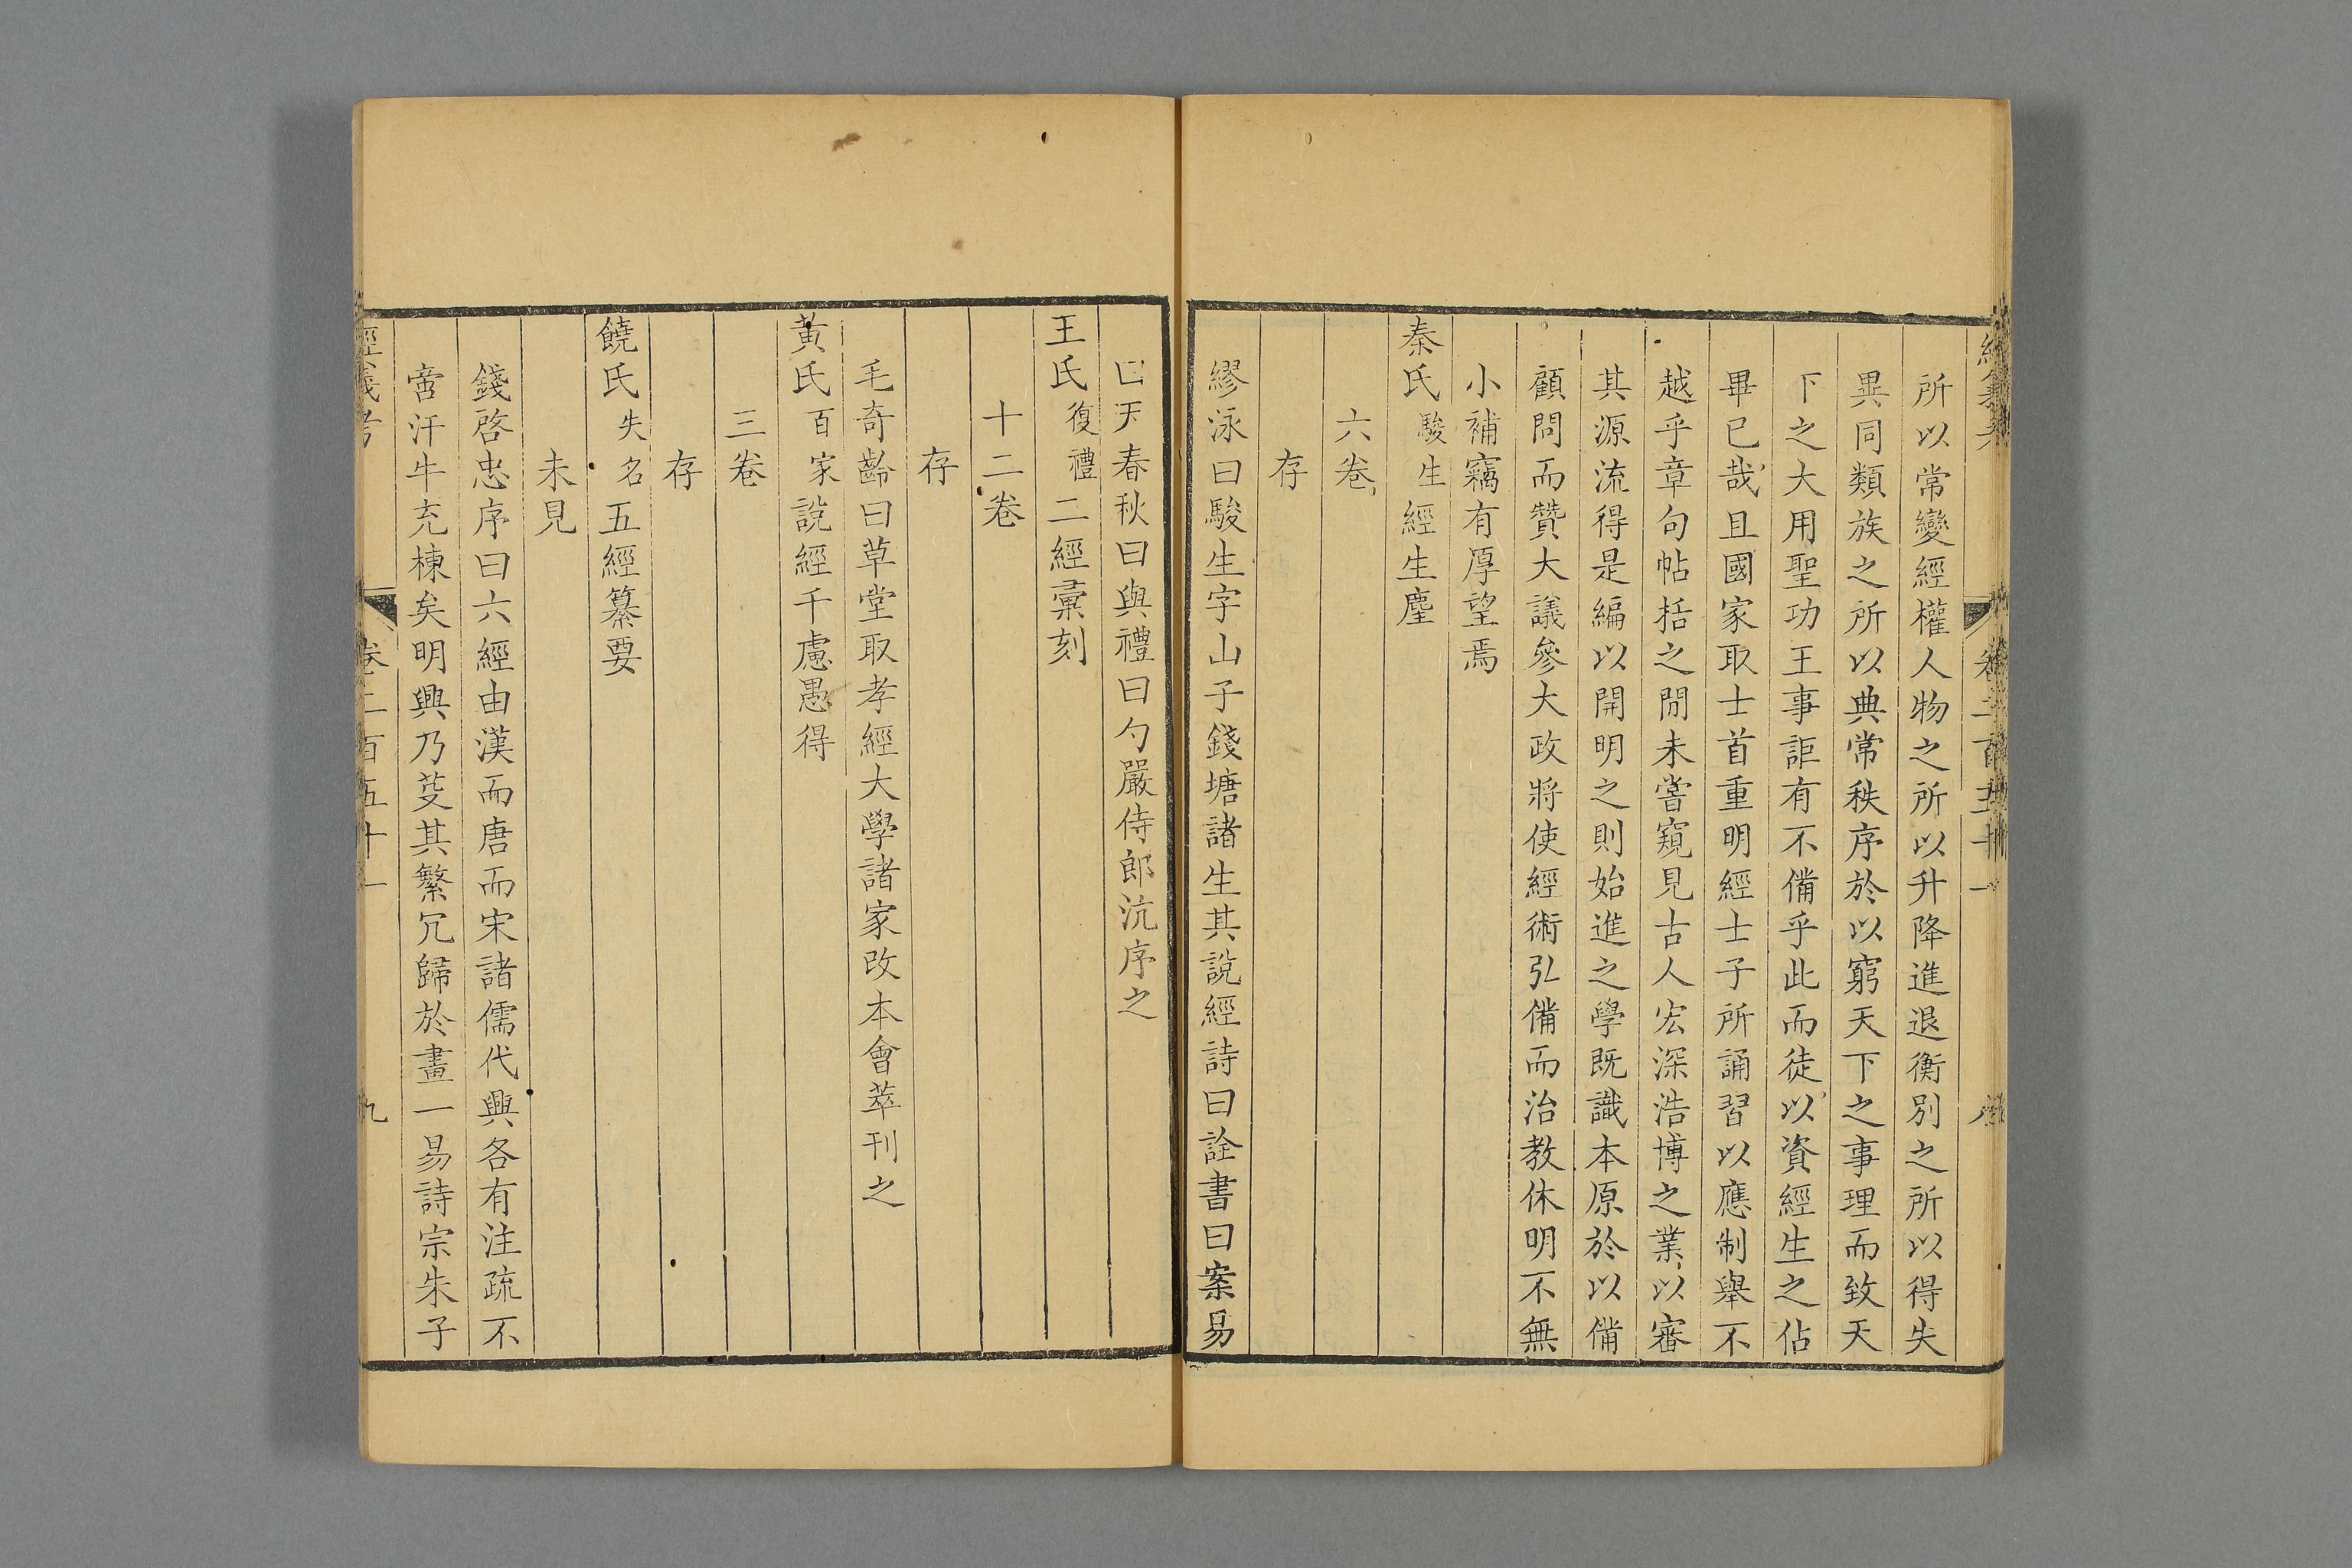 經義考
卷二百五十一
所以常變經權人物之所以升降進退衡別之所以得失
異同類族之所以典常秩序於以窮天下之事理而致天
下之大用聖功王事詎有不備乎此而徒以資經生之佔
畢已哉且國家取士首重明經士子所誦習以應制舉不
越乎章句帖括之閒未嘗窺見古人宏深浩博之業以審
其源流得是編以開明之則始進之學既識本原於以備
顧問而贊大議參大政將使經術弘備而治教休明不無
小補竊有厚望焉
秦氏駿生經生塵
六卷
存
繆泳曰駿生字山子錢塘諸生其說經詩曰詮書曰案易
曰天春秋曰與禮曰勺嚴侍郎沆序之
王氏復禮二經彙刻
十二卷
存
毛奇齡曰草堂取孝經大學諸家改本會萃刊之
黃氏百家說經千慮愚得
三卷
存
饒氏失名五經纂要
未見
錢啓忠序曰六經由漢而唐而宋諸儒代興各有注疏不
啻汗牛充棟矣明興乃芟其繁冗歸於畫一易詩宗朱子
經義考
卷二百五十一
九